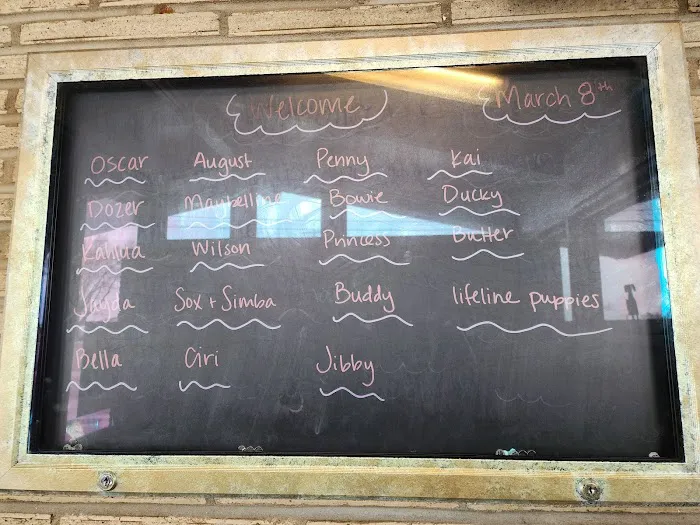 Welcome March 8th
Oscar August Penny Kai
Dozer Maybelline Bowie Ducky
Kahlua Wilson Princess Butter
Jayda Sox + Simba Buddy lifeline puppies
Bella Giri Jibby